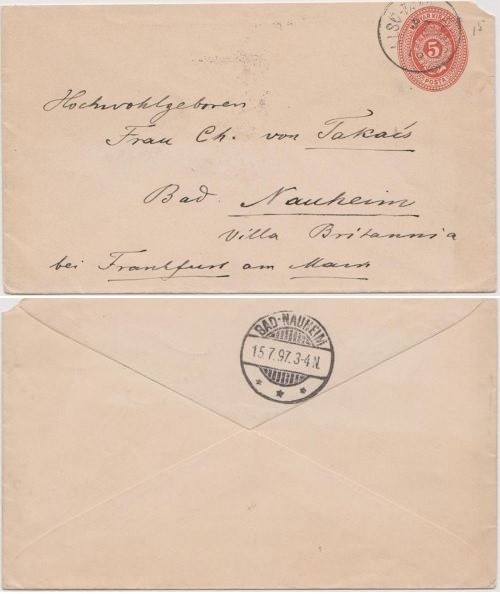 15
5
POSTA
Hochwohlgeboren
Frau Ch. von Takáis
Bad Nauheim
Villa Britannia
bei Frankfurt am Main
BAD-NAUHEIM
15.7.97.3-4N.